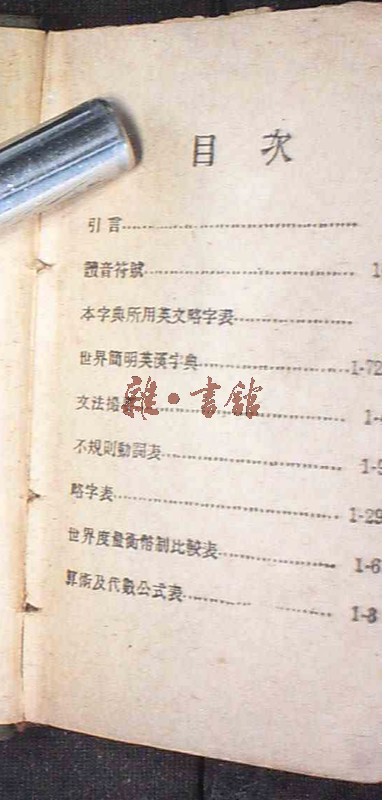 目次
引言
讀音符號 1
本字典所用英文略字表
世界簡明英漢字典 1-72
文法
雜·書館
不規則動詞表 1-9
略字表 1-29
世界度量衡幣制比較表 1-6
算術及代數公式表 1-8